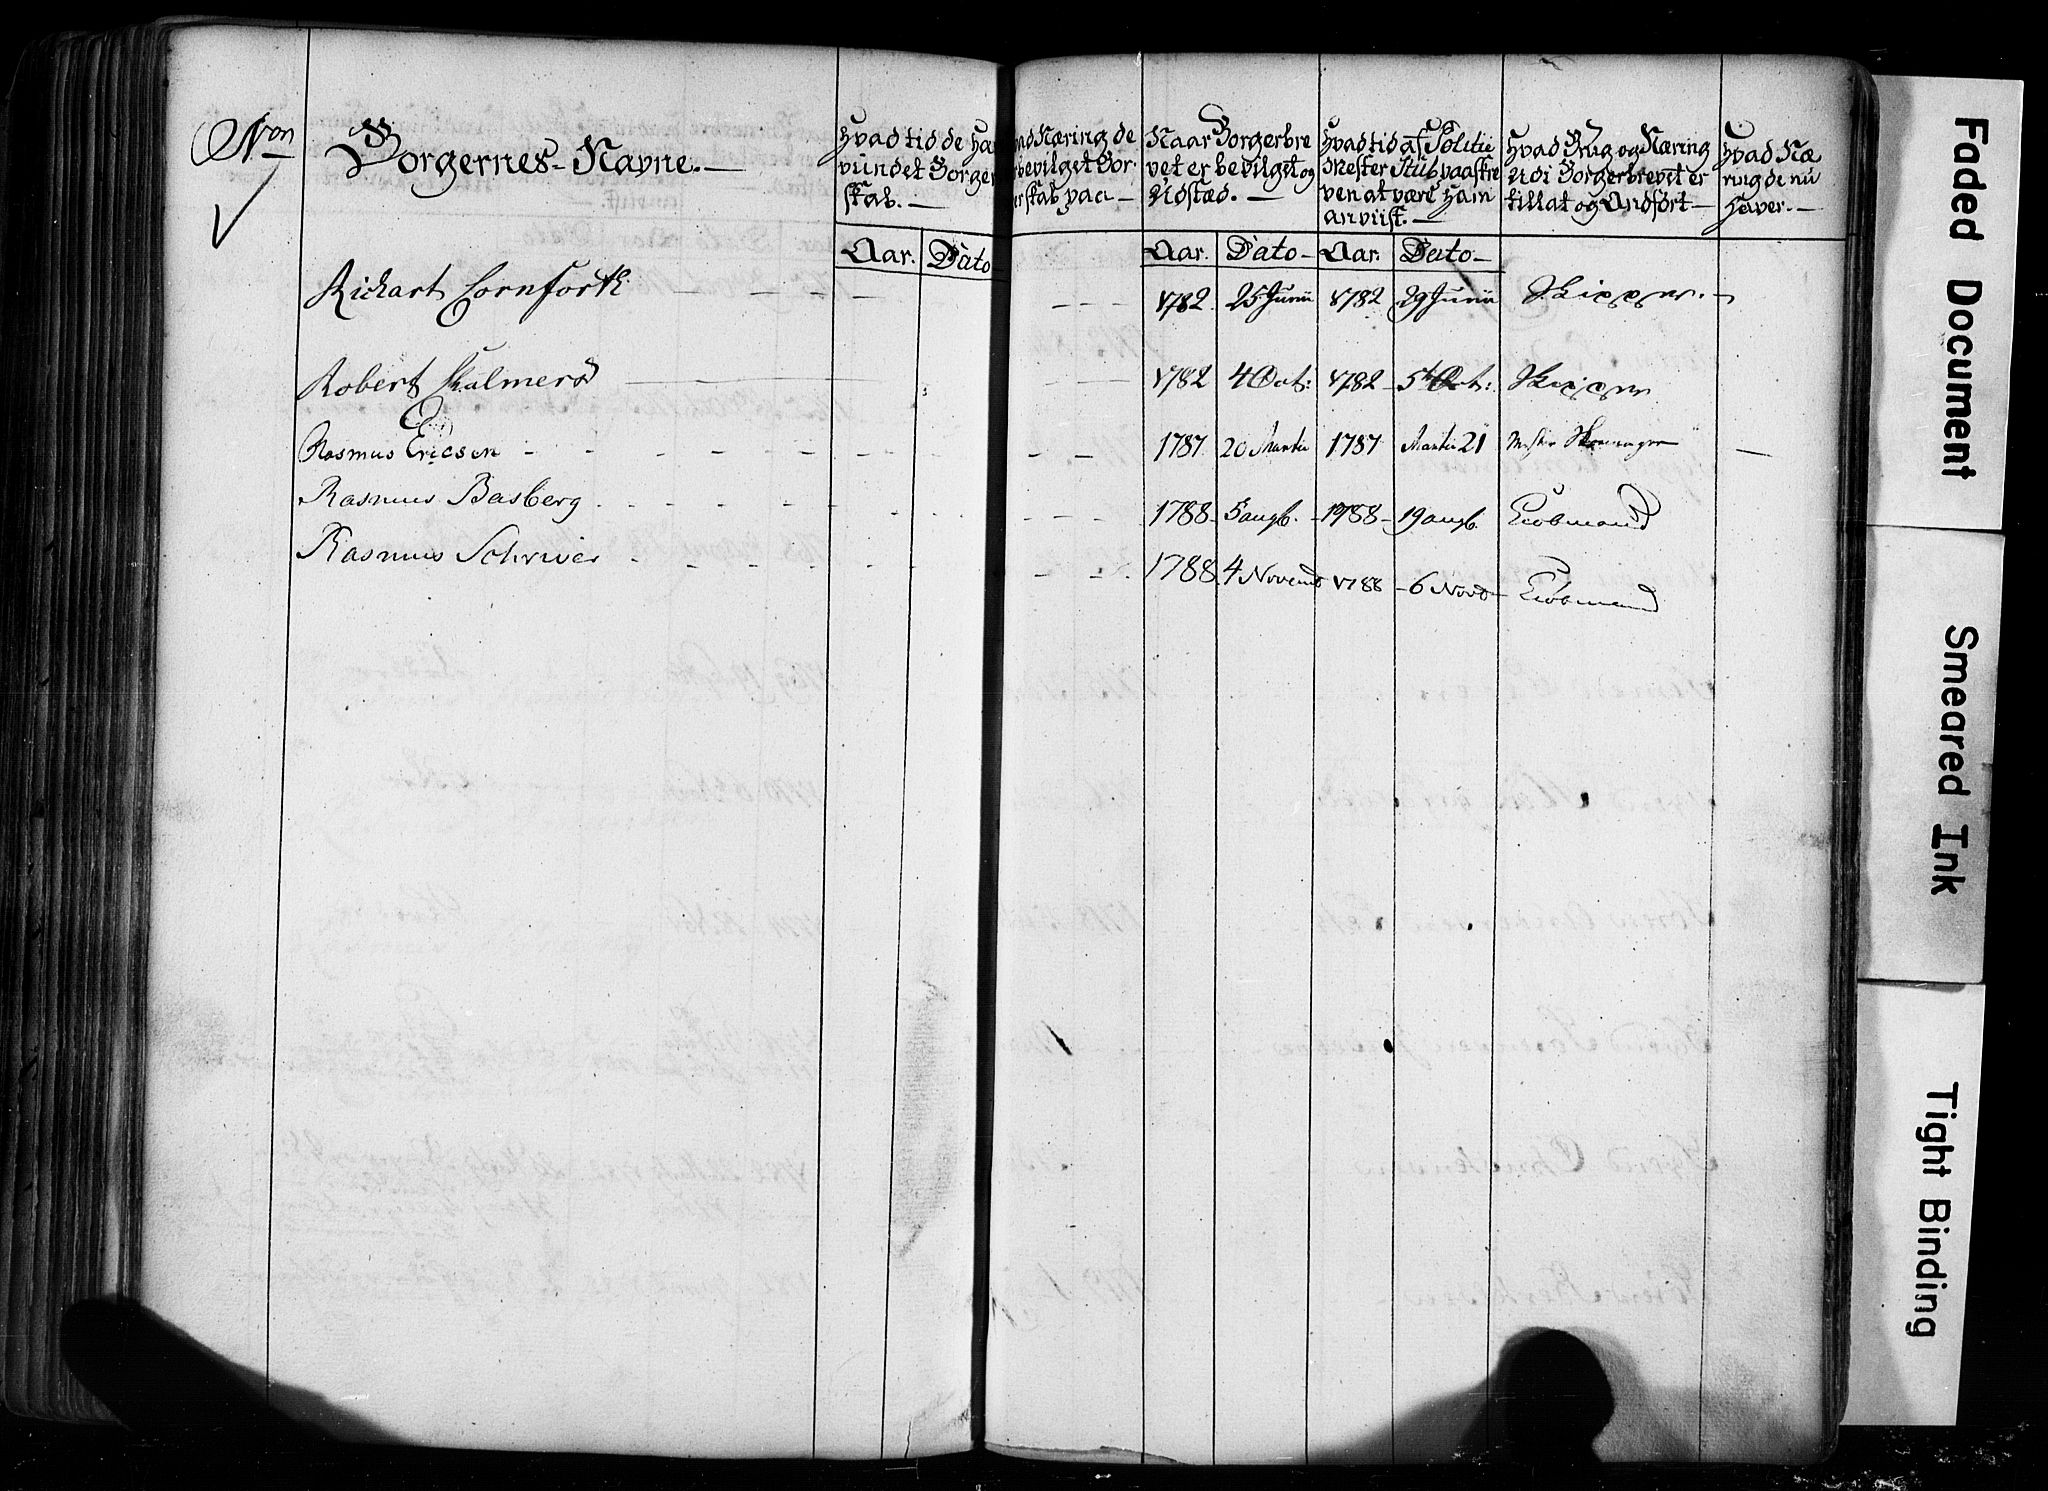 Non
Borgernes-Navne.—
hvad tid de Ha
vundet Borger
skab.—
Aar. Dato
vad Næring de
bevilget Bor-
erskab paa—
Naar Borgerbre
vet er bevilget og
Udstæd.—
Aar. Dato—
hvad tid af Politie
Mester Stub paaskre
ven at være Ham
anviist.—
Aar. Dato—
hvad Brug og Næring
Udi Borgerbrevet er
tillat og Andført—
Hvad Næ
ring de nu
Haver.—
Rickart Cornforth — — — — — — — 1782. 25 Junii 1782 29 Junii Skipper. —
Robert Skalmers — 1782 4 Oct: 1782 — 5th Oct: Skipper
Rasmus Ericsen - - - - - - - 1787. 20 Martii 1787 Martii 21 —
Rasmus Basberg . - - - - - - - 1788 - 5 augb. - 1788 - 19 augb. Kiøbmand
Rasmus Schriver - - - - - - - 1788. 4 Novemb 1788 - 6 Novb - Kiøbmand
Faded Document
Smeared Ink
Tight Binding